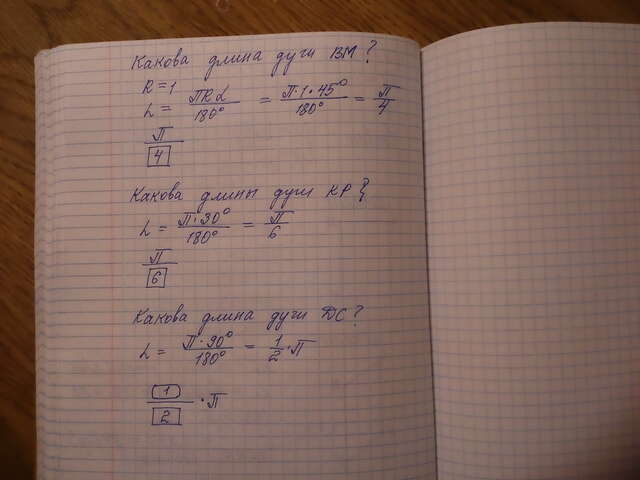 Какова длина дуги ВМ?
R=1
L = ПRα/180° = П·1·45°/180° = П/4
П/4
Какова длины дуги КР?
L = П·30°/180° = П/6
П/6
Какова длина дуги DC?
L = П·90°/180° = 1/2·П
1/2·П